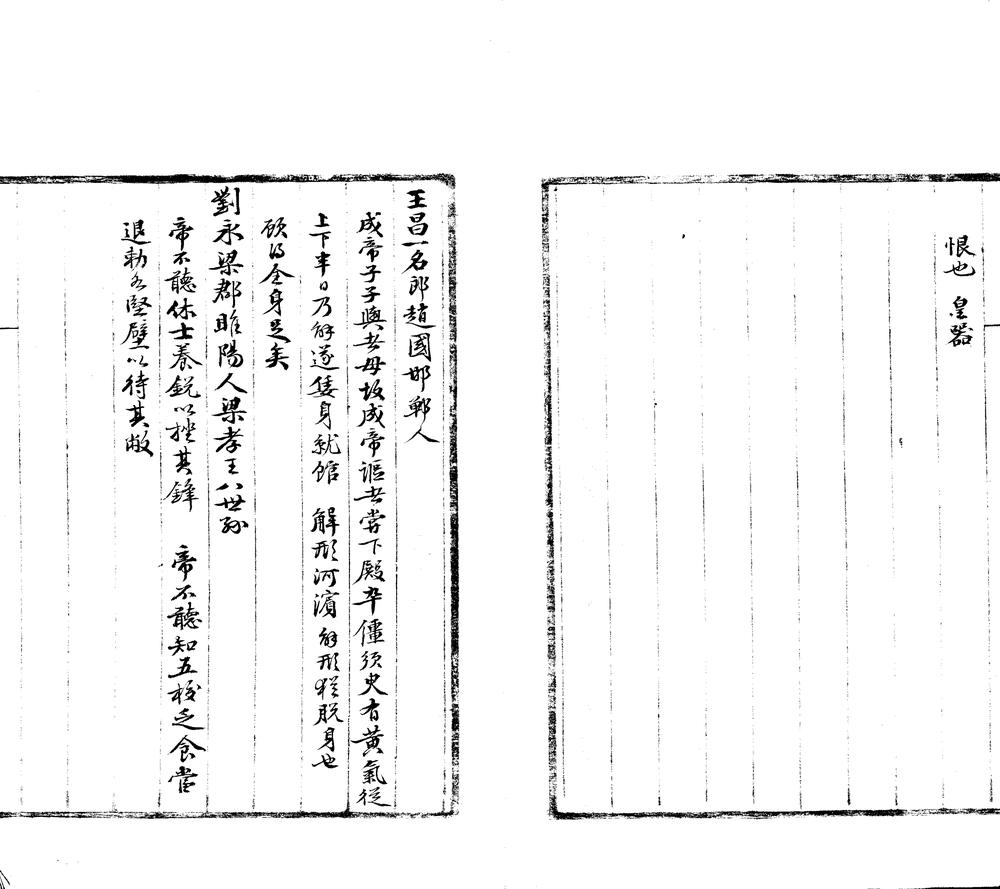 恨也 皇器
王昌一名郎趙國邯鄲人
成帝子子輿者母故成帝謳者嘗下殿卒僵須臾有黃氣從
上下半日乃解遂㑗身就館 解形河濱 解形猶脫身也
顧得全身足矣
劉永梁郡睢陽人梁孝王八世孫
帝不聽休士養銳以挫其鋒 帝不聽知五校乏食當
退勅各堅壁以待其敝